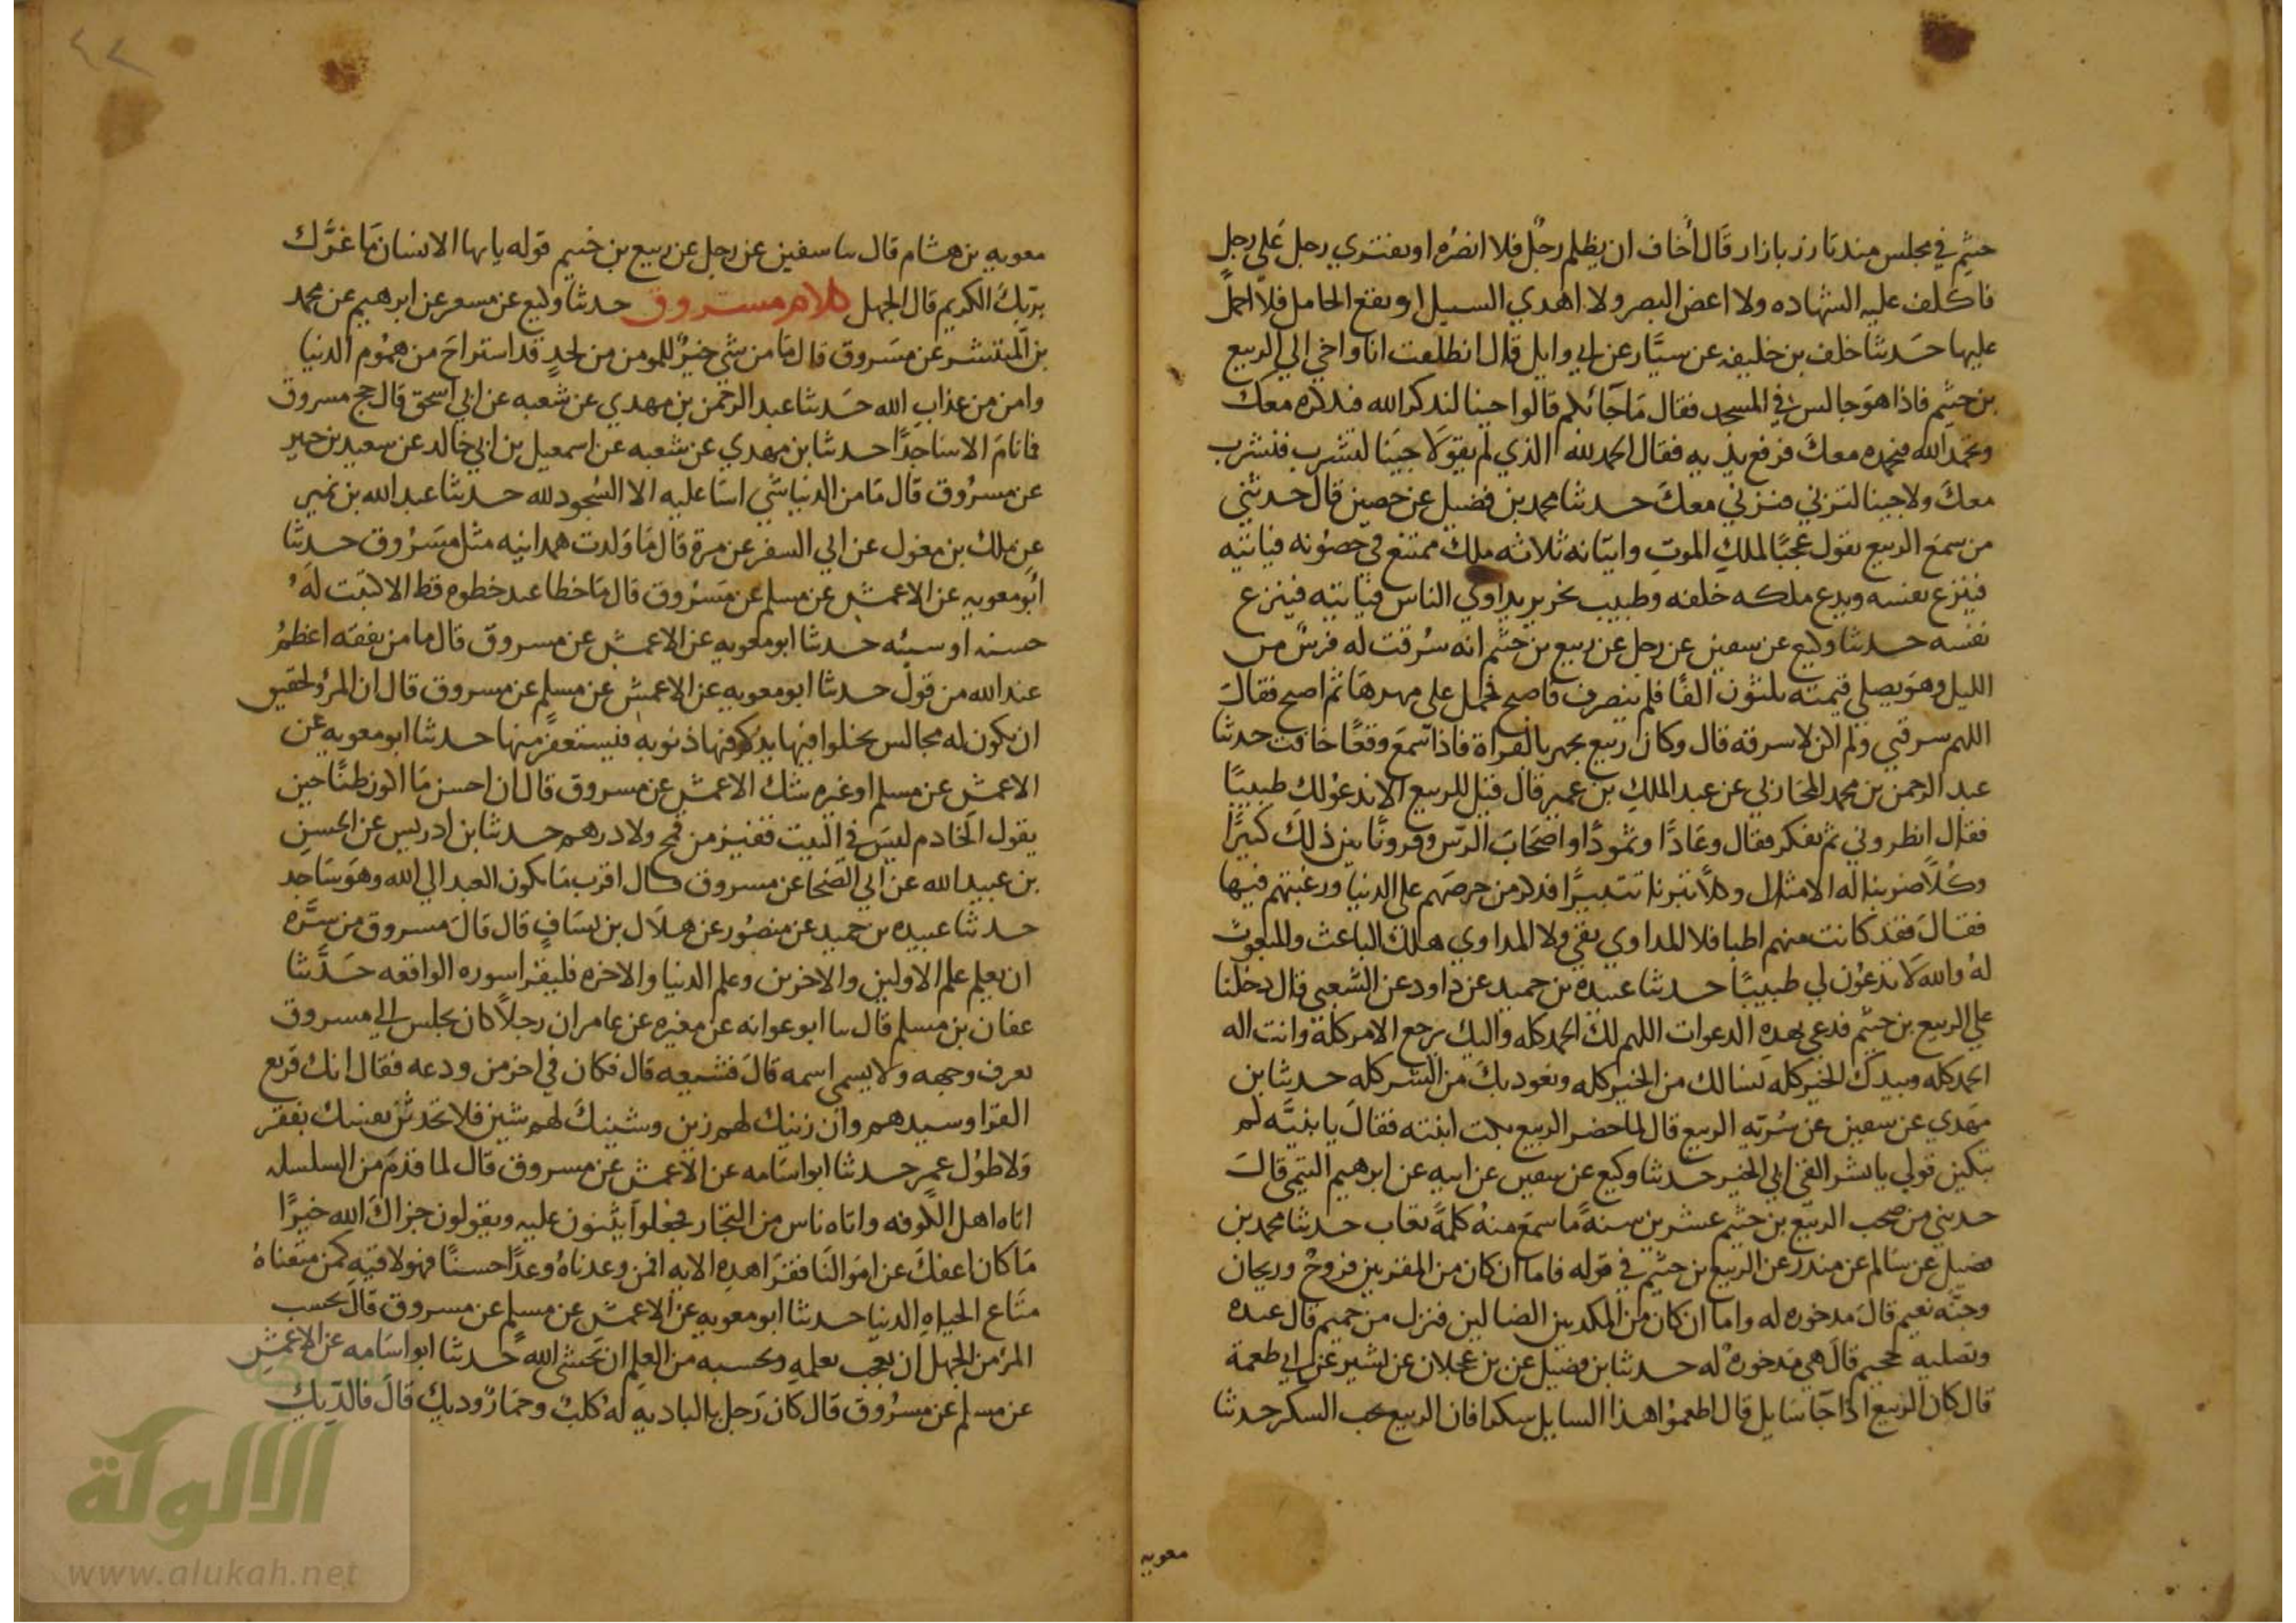 خثيم في مجلس منذ تازر بازار قال أخاف ان يظلم رجل فلا انصره او يفتري رجل على رجل
فاكلف عليه الشهاده ولا اغض البصر ولا اهدي السبيل او يقع الحامل فلا احمل
عليها حدثنا خلف بن خليفه عن سيار عن ابي وايل قال انطلقت انا واخي الي الربيع
بن خثيم فاذا هو جالس في المسجد فقال ما جائكم قالوا جينا لتذكر الله فنذكره معك
وتحمد الله فنحمده معك فرفع يديه فقال الحمد لله الذي لم يقولا جينا لتشرب فنشرب
معك ولا جينا لتزني فنزني معك حدثنا محمد بن فضيل عن حصين قال حدثني
من سمع الربيع يقول عجبًا لملك الموت واتيانه ثلاثه ملك ممتنع في حصونه فياتيه
فينزع نفسه ويدع ملكه خلفه وطبيب نحرير يداوي الناس فياتيه فينزع
نفسه حدثنا وكيع عن سفين عن رجل عن ربيع بن خثيم انه سرقت له فرس من
الليل وهو يصلي قيمته ثلثون الفًا فلم ينصرف فاصبح فحمل على مهرها ثم اصبح فقال
اللهم سرقني ولم اكن لاسرقه قال وكان ربيع يجهر بالقراة فاذا سمع وقعًا خافت حدثنا
عبد الرحمن بن محمد المحاربي عن عبد الملك بن عمير قال قيل للربيع الا ندعو لك طبيبًا
فقال انظروني ثم تفكر فقال وعادًا وثمودًا واصحاب الرس وقرونًا بين ذلك كثيرًا
وكلًا ضربنا له الامثال وكلًا تبرنا تتبيرًا فذكر من حرصهم على الدنيا ورغبتهم فيها
فقال فقد كانت منهم اطبا فلا المداوي بقي ولا المداوي هلك الباعث والمبعوث
له والله لا تدعون لي طبيبًا حدثنا عبيده بن حميد عن داود عن الشعبي قال دخلنا
علي الربيع بن خثيم فدعي بهذه الدعوات اللهم لك الحمد كله واليك يرجع الامر كله وانت اله
الحمد كله وبيدك الخير كله نسالك من الخير كله ونعوذ بك من الشر كله حدثنا بن
مهدي عن سفين عن سريه الربيع قال لما حضر الربيع بكت ابنته فقال يا بنيه لم
تبكين قولي يا بشر القي ابي الخير حدثنا وكيع عن سفين عن ابيه عن ابرهيم التيمي قال
حدثني من صحب الربيع بن خثيم عشرين سنة ما سمع منه كلمة تعاب حدثنا محمد بن
فضيل عن سالم عن منذر عن الربيع بن خثيم في قوله فاما ان كان من المقربين فروح وريحان
وجنه نعيم قال مدخوره له واما ان كان من المكذبين الضالين فنزل من حميم قال عنده
وتصليه جحيم قال هي مدخوره له حدثنا بن فضيل عن بن عجلان عن نسير عن ابي طعمة
قال كان الربيع اذا جا سايل قال اطعموا هذا السايل سكرا فان الربيع يحب السكر حدثنا
معويه
معويه بن هشام قال ثنا سفين عن رجل عن ربيع بن خثيم قوله يايها الانسان ما غرك
بربك الكريم قال الجهل كلام مسروق حدثنا وكيع عن مسعر عن ابرهيم عن محمد
بن المنتشر عن مسروق قال ما من شي خير للمومن من لحد قد استراح من هموم الدنيا
وامن من عذاب الله حدثنا عبد الرحمن بن مهدي عن شعبه عن ابي اسحق قال حج مسروق
فما نام الا ساجدًا حدثنا بن مهدي عن شعبه عن اسمعيل بن ابي خالد عن سعيد بن جبير
عن مسروق قال ما من الدنيا شي اسا عليه الا السجود لله حدثنا عبد الله بن نمير
عن ملك بن مغول عن ابي السفر عن مرة قال ما ولدت همدانيه مثل مسروق حدثنا
ابو معويه عن الاعمش عن مسلم عن مسروق قال ما خطا عبد خطوه قط الا كتبت له
حسنه او سيئه حدثنا ابو معويه عن الاعمش عن مسروق قال ما من نفقه اعظم
عند الله من قول حدثنا ابو معويه عن الاعمش عن مسلم عن مسروق قال ان المرؤ لحقيق
ان يكون له مجالس يخلوا فيها يذكر فيها ذنوبه فيستغفر منها حدثنا ابو معويه عن
الاعمش عن مسلم او غيره شك الاعمش عن مسروق قال ان احسن ما اكون ظنًا حين
يقول الخادم ليس في البيت قفيز من قمح ولا درهم حدثنا بن ادريس عن الحسن
بن عبيد الله عن ابي الضحا عن مسروق قال اقرب ما يكون العبد الي الله وهو ساجد
حدثنا عبيده بن حميد عن منصور عن هلال بن يساف قال قال مسروق من سره
ان يعلم علم الاولين والاخرين وعلم الدنيا والاخره فليقرا سوره الواقعه حدثنا
عفان بن مسلم قال ثنا ابو عوانه عن مغيره عن عامر ان رجلًا كان يجلس الي مسروق
يعرف وجهه ولا يسمي اسمه قال فشيعه قال فكان في اخر من ودعه فقال انك قريع
القرا وسيدهم وان زينك لهم زين وشينك لهم شين فلا تحدثن نفسك بفقر
ولا طول عمر حدثنا ابو اسامه عن الاعمش عن مسروق قال لما قدم من السلسله
اتاه اهل الكوفه واتاه ناس من التجار فجعلوا يثنون عليه ويقولون جزاك الله خيرًا
ما كان اعفك عن اموالنا فقرا هذه الايه افمن وعدناه وعدًا حسنًا فهو لاقيه كمن متعناه
متاع الحياه الدنيا حدثنا ابو معويه عن الاعمش عن مسلم عن مسروق قال بحسب
المرء من الجهل ان يعجب بعلمه وبحسبه من العلم ان يخشى الله حدثنا ابو اسامه عن الاعمش
عن مسلم عن مسروق قال كان رجل بالباديه له كلب وحمار وديك قال فالديك
الألوكة
www.alukah.net